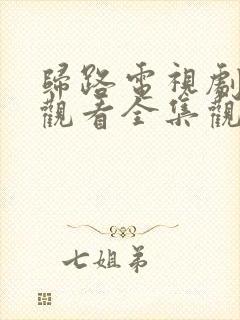 歸路電視劇
觀看全集觀
七姐弟